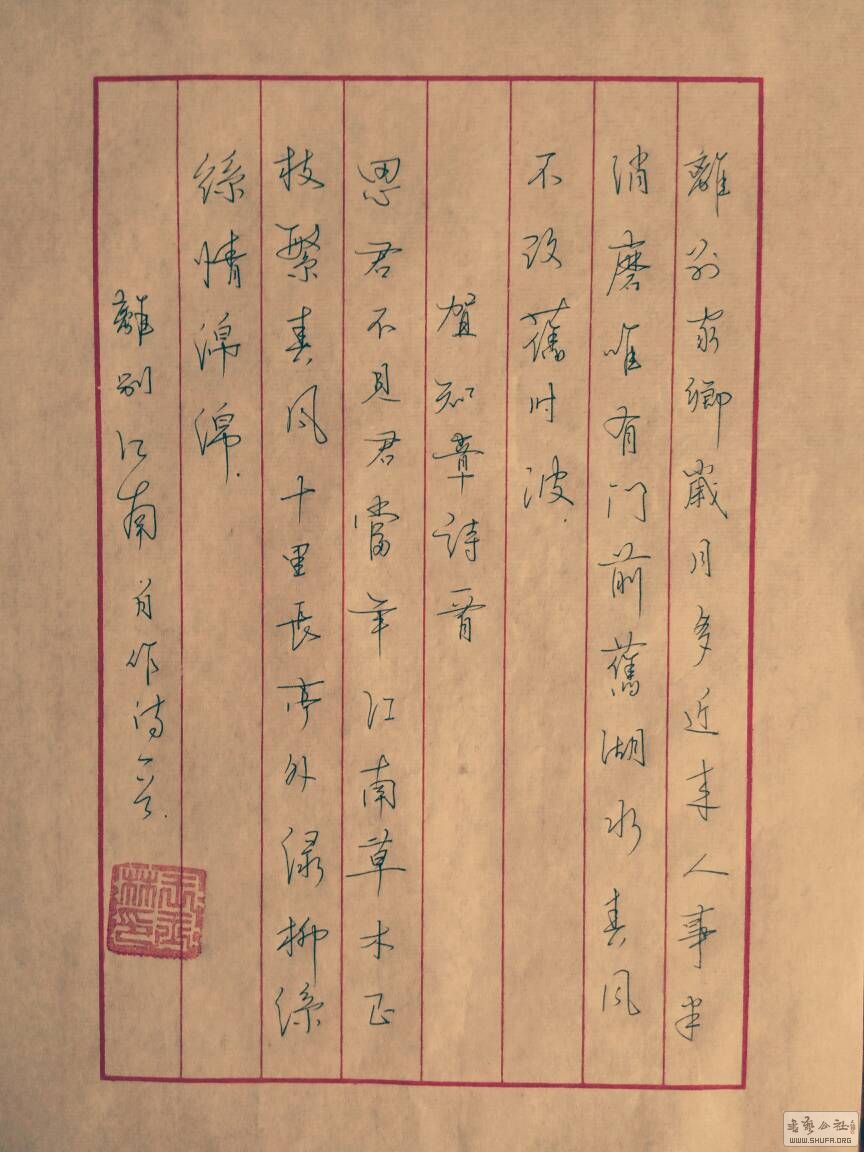 離別家鄉歲月多近来人事半
消磨唯有门前舊湖水春风
不改舊时波
賀知章詩一首
思君不見君當年江南草木正
枝繁春风十里長亭外绿柳絲
絲情綿綿
離別江南自作诗一首
书艺公社
WWW.SHUFA.ORG